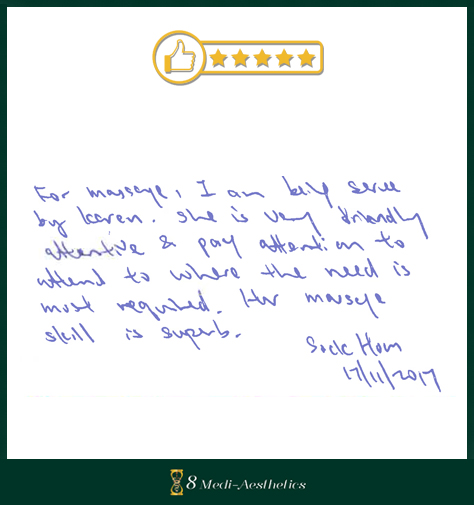 For massage, I am being serve
by karen. She is very friendly
attentive & pay attention to
attend to where the need is
most required. Her massage
skill is superb.
Sock Hom
17/11/2017
8 Medi-Aesthetics